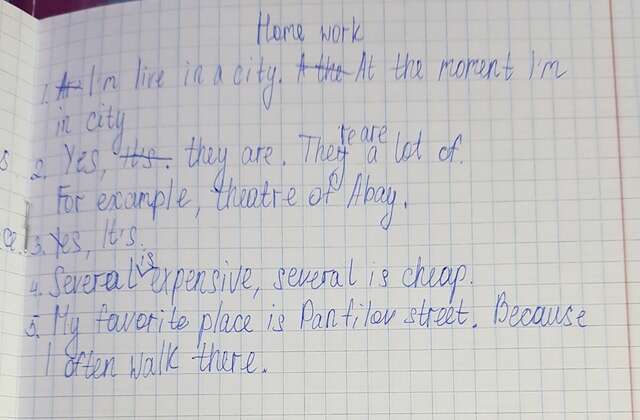 Home work
1. A I'm live in a city. A the At the moment I'm
in city
2. Yes, it's. they are. They're are a lot of.
For example, theatre of Abay.
3. Yes, It's.
4. Several is expensive, several is cheap.
5. My favorite place is Panfilov street. Because
I often walk there.